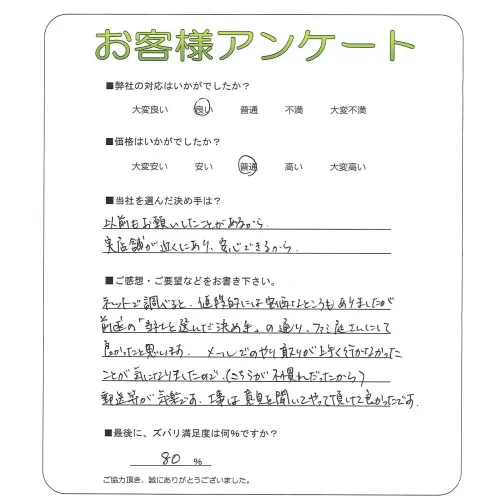 お客様アンケート
■弊社の対応はいかがでしたか？
大変良い 良い 普通 不満 大変不満
■価格はいかがでしたか？
大変安い 安い 普通 高い 大変高い
■当社を選んだ決め手は？
以前もお願いしたことがあるから。
実店舗が近くにあり、安心できるから。
■ご感想・ご要望などをお書き下さい。
ネットで調べると、値段的には安価なところもありましたが
前述の「当社を選んだ決め手」の通り、ファミ庭さんにして
良かったと思います。メールでのやり取りが上手く行かなかった
ことが気になりましたので、(こちらが不慣れだったから)
郵送等が気楽です。工事は意見を聞いてやって頂けて良かったです。
■最後に、ズバリ満足度は何％ですか？
80 %
ご協力頂き、誠にありがとうございました。